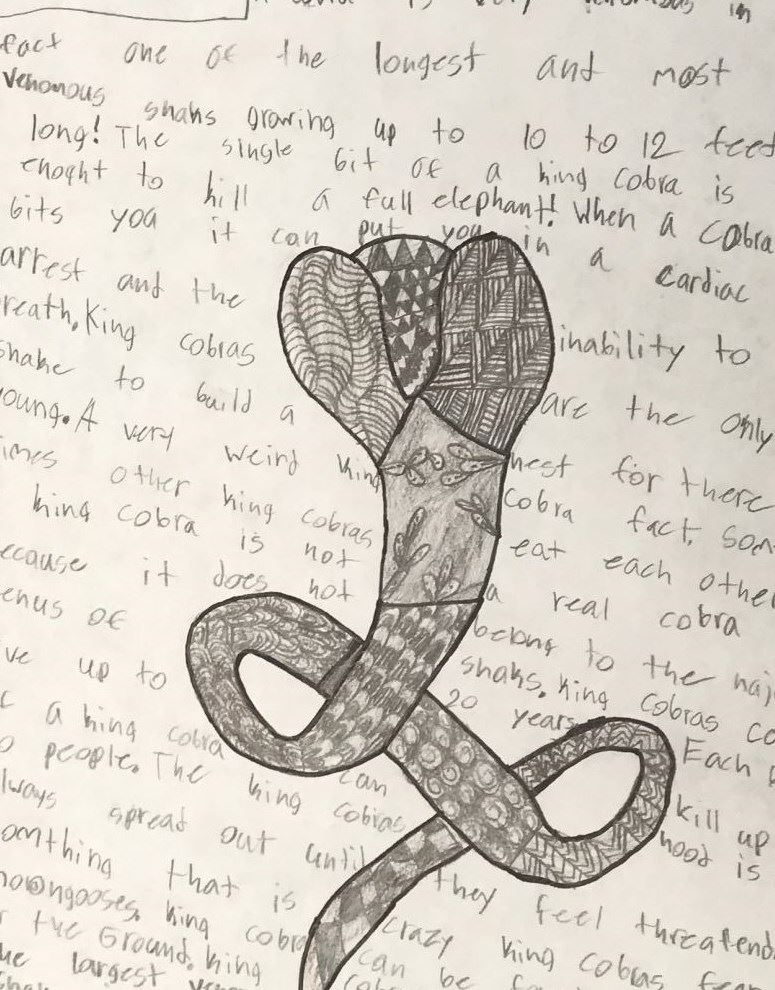 is very venomous in
fact one of the longest and most
venomous snaks growing up to 10 to 12 feet
long! The single bit of a king cobra is
enoght to kill a full elephant! When a cobra
bits you it can put you in a cardiac
arrest and the inability to
reath. King cobras are the only
snake to build a nest for there
oung. A very weird king cobra fact, som
imes other king cobras eat each other
king cobra is not a real cobra
ecause it does not belong to the naj
enus of snaks. king cobras co
ve up to 20 years. Each
a king cobra can kill up
o people. The king cobras hood is
lways spread out until they feel threatend
omthing that is crazy king cobras fear
mongooses. king cobra can be
the Ground. King
he largest